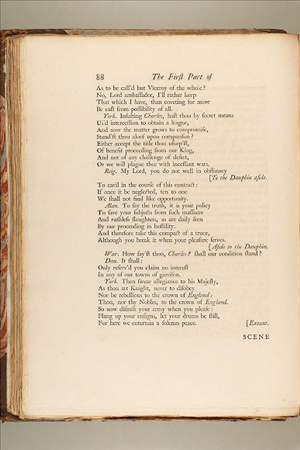 88 The First Part of
As to be call'd but Viceroy of the whole?
No, Lord ambassador, I'll rather keep
That which I have, than coveting for more
Be cast from possibility of all.
York. Insulting Charles, hast thou by secret means
Us'd intercession to obtain a league,
And now the matter grows to compromise,
Stand'st thou aloof upon comparison?
Either accept the title thou usurp'st,
Of benefit proceeding from our King,
And not of any challenge of desert,
Or we will plague thee with incessant wars.
Reig. My Lord, you do not well in obstinacy
[To the Dauphin aside.
To cavil in the course of this contract:
If once it be neglected, ten to one
We shall not find like opportunity.
Alan. To say the truth, it is your policy
To save your subjects from such massacre
And ruthless slaughters, as are daily seen
By our proceeding in hostility.
And therefore take this compact of a truce,
Although you break it when your pleasure serves.
[Aside to the Dauphin.
War. How say'st thou, Charles? shall our condition stand?
Dau. It shall:
Only reserv'd you claim no interest
In any of our towns of garrison.
York. Then swear allegiance to his Majesty,
As thou art Knight, never to disobey
Nor be rebellious to the crown of England:
Thou, nor thy Nobles, to the crown of England.
So now dismiss your army when you please:
Hang up your ensigns, let your drums be still,
For here we entertain a solemn peace. [Exeunt.
SCENE